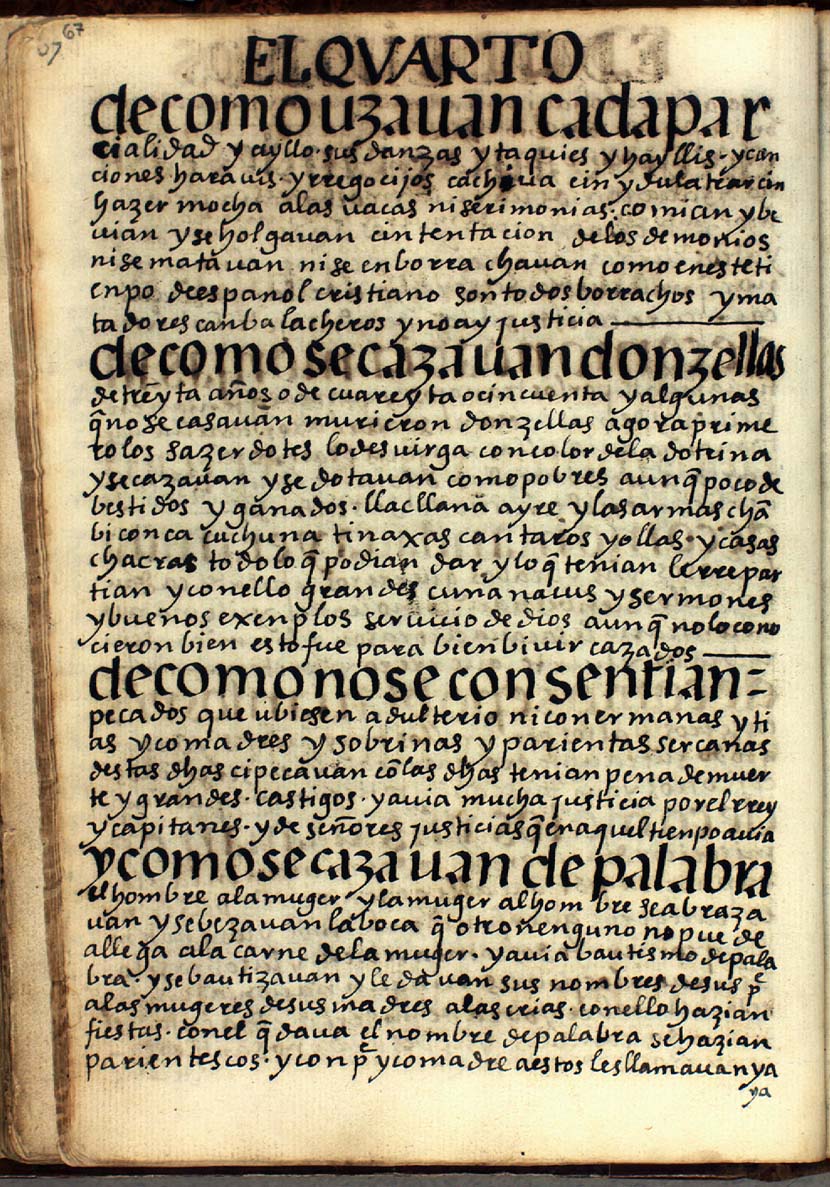 67
67
EL QVARTO
de como uzauan cada par
cialidad y ayllo. sus danzas y taquies y hayllis. y can
ciones harauis. y rregocijos cachiua cin ydulatrar cin
hazer mocha a las uacas ni serimonias. comian y be
uian y se holgauan cin tentacion de los demonios
ni se matauan ni se enborrachauan como en este ti
enpo de español cristiano son todos borrachos y ma
tadores canbalacheros y no ay justicia
de como se cazauan donzellas
de treyta años o de cuareyta o cincuenta y algunas
q̃ no se casauan murieron donzellas agora prime
ro los sazerdotes lo desuirga con color de la dotrina
y se cazauan y se dotauan como pobres aunq̃ poco de
bestidos y ganados. llacllana ayre y las armas chã
bi conca cuchuna tinaxas cantaros y ollas. y casas
chacras todo lo q̃ podian dar y lo q̃ tenian le rrepar
tian y con ello grandes cunanacus y sermones
y buenos exenplos seruicio de dios aunq̃ no lo cono
cieron bien esto fue para bien biuir cazados
de como no se consentian=
pecados que ubiesen adulterio ni con ermanas y ti
as y comadres y sobrinas y parientas sercanas
destas dhas ci pecauan cõ las dhas tenian pena de muer
te y grandes. castigos. y auia mucha justicia por el rrey
y capitanes. y de señores justicias q̃ en aquel tienpo auia
y como se cazauan de palabra
el hombre a la muger y la muger al hombre se abraza
uan y se bezauan la boca q̃ otro nenguno no puede
allega a la carne de la muger. y auia bautismo de pala
bra. y se bautizauan y le dauan sus nombres de sus p̃
a las mugeres de sus madres a las crias. con ello hazian
fiestas. con el q̃ daua el nombre de palabra se hazian
parientescos. y conp̃ y comadre a estos les llamauan ya
ya